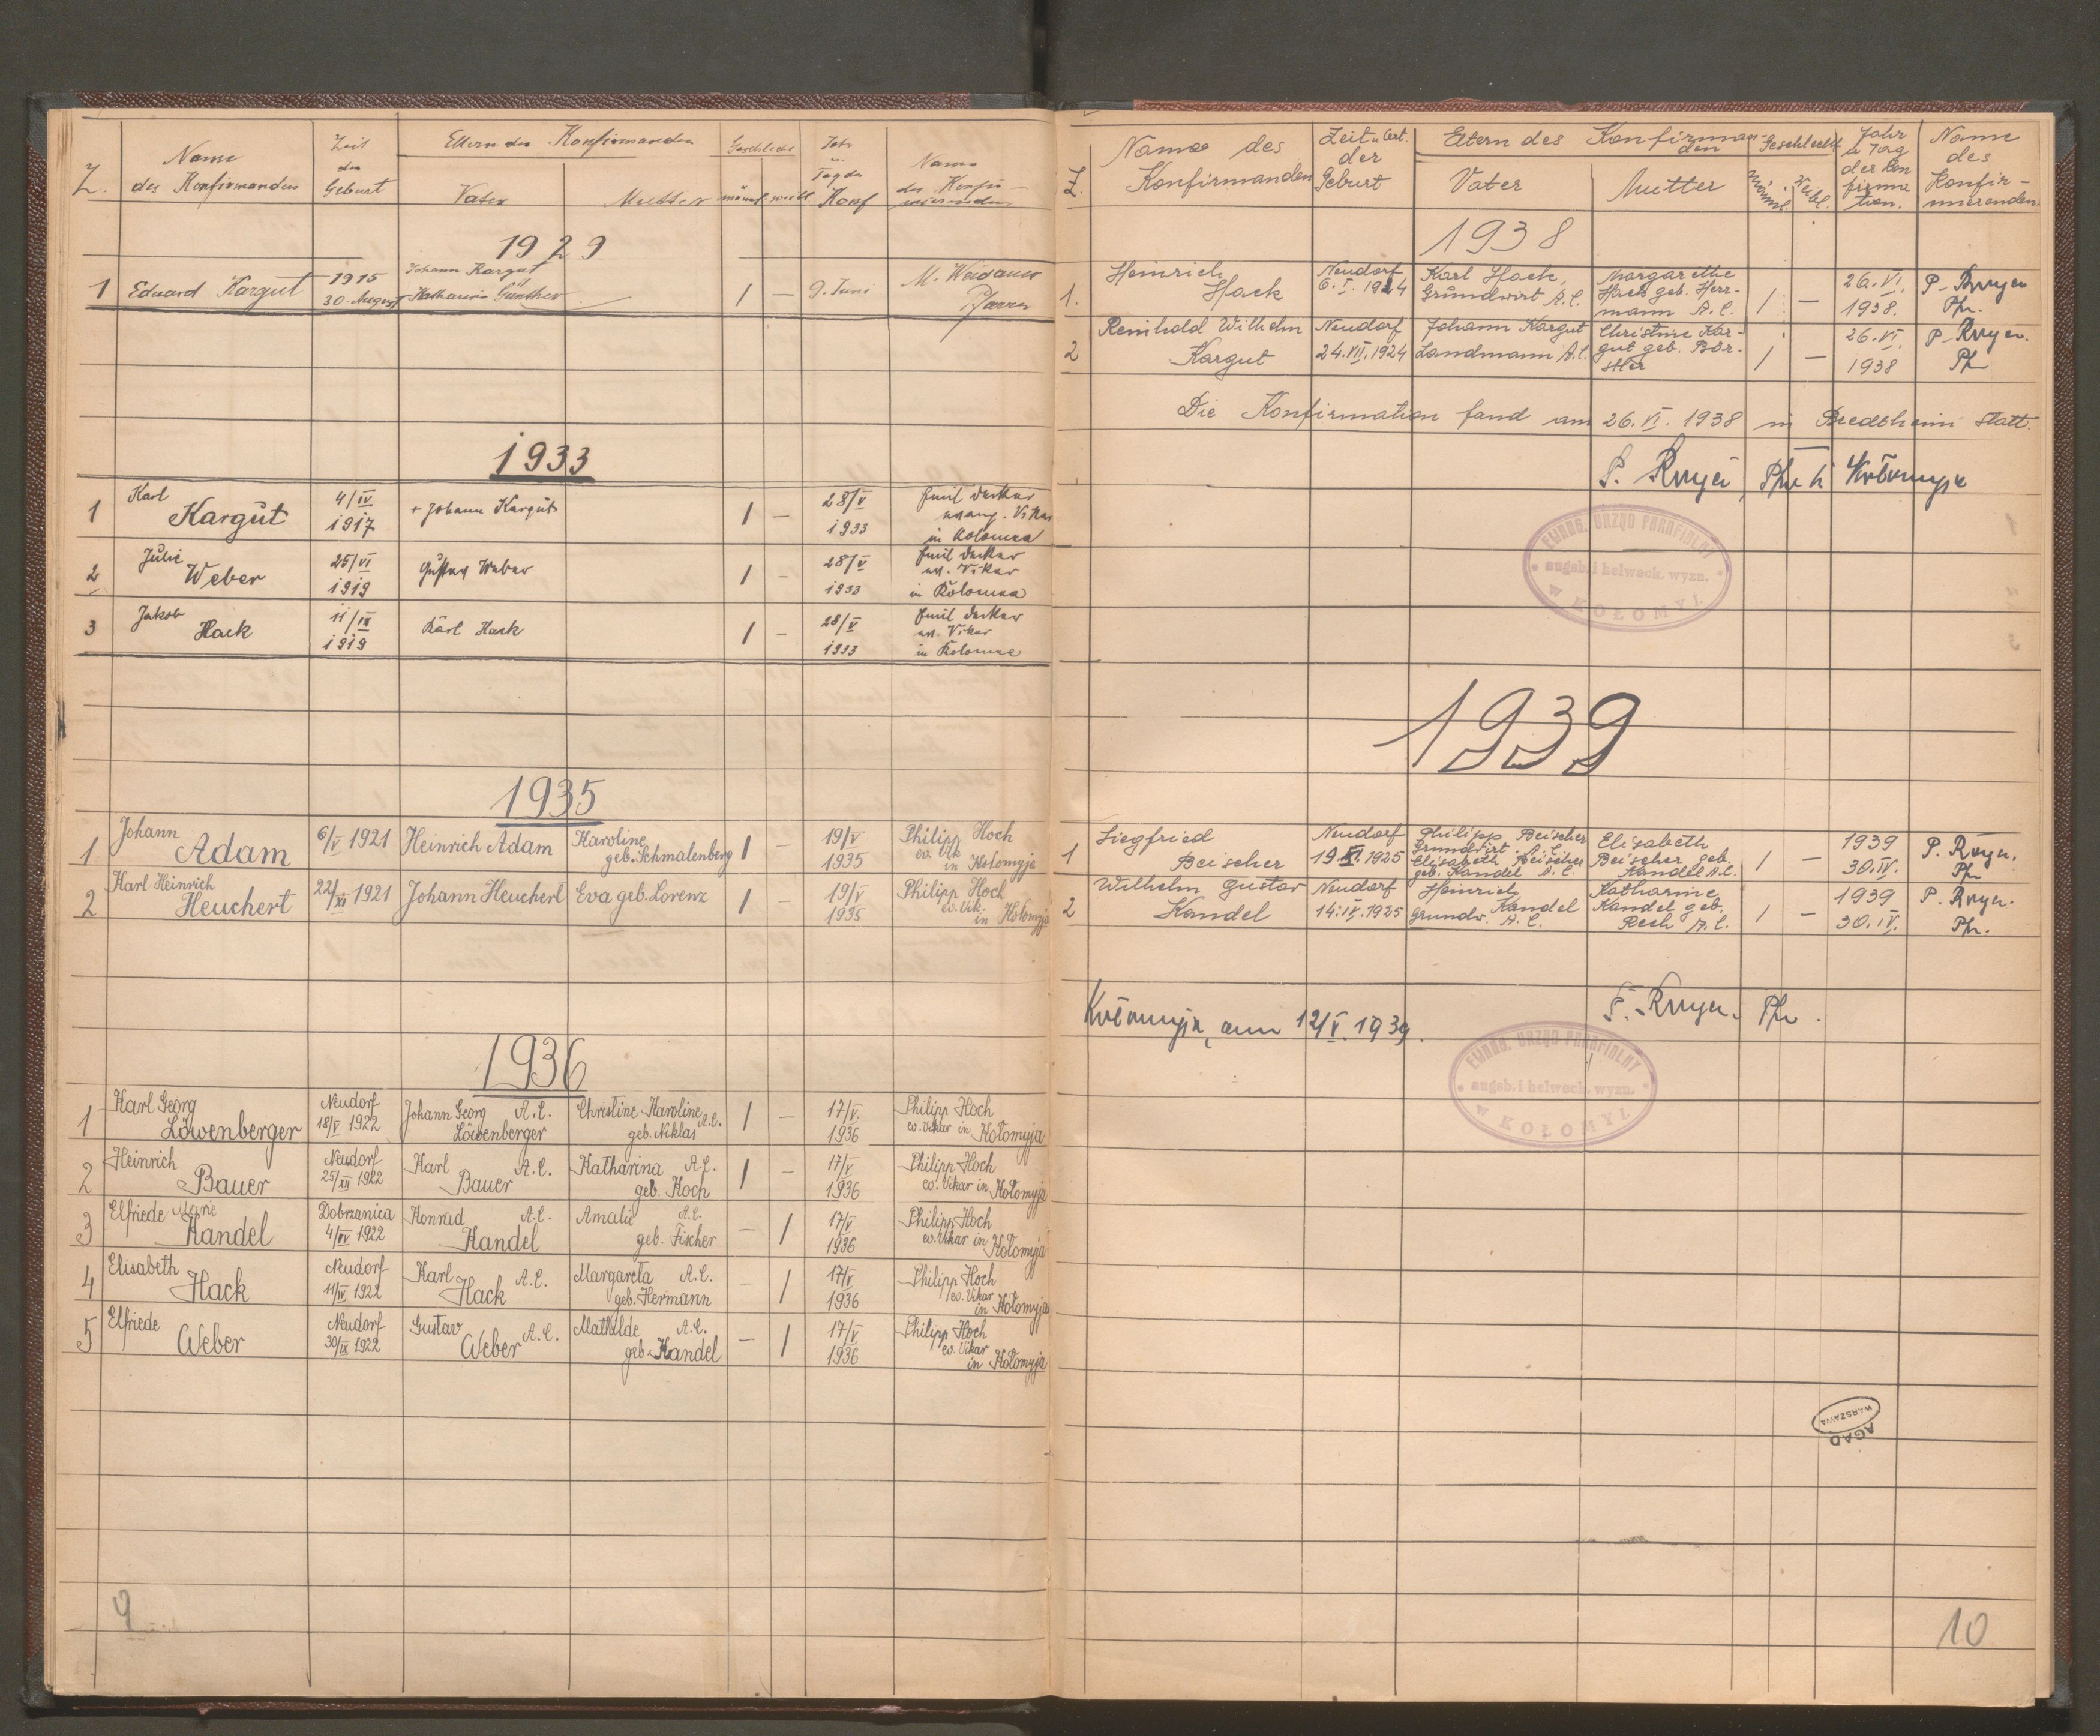 Z.
Name
des Konfirmanden
Zeit
der
Geburt
Eltern des Konfirmanden
Vater
Mutter
Geschlecht
männl. weibl.
Jahr
u.
Tag der
Konf
Name
des Konfir-
mierenden
1929
1 Eduard Kargut
1915
30. August
Johann Kargut
Katharina Günther
1 —
9. Juni
M. Weidauer
Pfarrer
1933
1
Karl
Kargut
4/IV
1917
+ Johann Kargut
1 —
28/V
1933
Emil
ev. Vikar
in Kolomea
2
Julie
Weber
25/VI
1919
Gustav Weber
1 —
28/V
1933
Emil
Vikar
in Kolomea
3
Jakob
Hack
11/IX
1919
Karl Hack
1 —
28/V
1933
Emil
Vikar
in Kolomea
1935
1
Johann
Adam
6/V 1921
Heinrich Adam
Karoline
geb. Schmalenberg
1 —
19/V
1935
Philipp Hoch
ev. Vik
in Kołomyja
2
Karl Heinrich
Heuchert
22/XI 1921
Johann Heuchert
Eva geb. Lorenz
1 —
19/V
1935
Philipp Hoch
ev. Vik.
in Kołomyja
1936
1
Karl Georg
Löwenberger
Neudorf
18/V 1922
Johann Georg A.C.
Löwenberger
Christine Karoline A.C.
geb. Niklas
1 —
17/V
1936
Philipp Hoch
ev. Vikar in Kołomyja
2
Heinrich
Bauer
Neudorf
25/XII 1922
Karl A.C.
Bauer
Katharina A.C.
geb. Koch
1 —
17/V
1936
Philipp Hoch
ev. Vikar in Kołomyja
3
Elfriede Marie
Kandel
Dobrzanica
4/IV 1922
Konrad A.C.
Kandel
Amalie A.C.
geb. Fischer
— 1
17/V
1936
Philipp Hoch
ev. Vikar in Kołomyja
4
Elisabeth
Hack
Neudorf
11/IV 1922
Karl A.C.
Hack
Margareta A.C.
geb. Hermann
— 1
17/V
1936
Philipp Hoch
ev. Vikar
in Kołomyja
5
Elfriede
Weber
Neudorf
30/IX 1922
Gustav
Weber A.C.
Mathilde A.C.
geb. Kandel
— 1
17/V
1936
Philipp Hoch
ev. Vikar
in Kołomyja
9
Z.
Name des
Konfirmanden
Zeit u. Ort.
der
Geburt
Eltern des Konfirman-
den
Vater
Mutter
Geschlecht
Männl.
Weibl.
Jahr
u Tag
der Kon
firma
tion.
Name
des
Konfir-
mierenden.
1938
1.
Heinrich
Hack
Neudorf
6. I. 1924
Karl Hack,
Grundwirt A.C.
Margarethe
Hack geb. Herr-
mann A.C.
1 —
26. VI.
1938.
P.
Pfr.
2
Reinhold Wilhelm
Kargut
Neudorf
24. VII. 1924
Johann Kargut
Landmann A.C.
Christine Kar-
gut geb. Bor-
stler
1 —
26. VI.
1938
P.
Pfr
Die Konfirmation fand am 26. VI. 1938 in Bredtheim statt.
Kołomyja
EWANG. URZĄD PARAFIALNY
augsb. i helweck. wyzn.
w KOŁOMYI.
1939
1
Siegfried
Beischer
Neudorf
1925
Philipp Beischer
Grundwirt A.C.
Elisabeth Beischer
geb. Kandel A.C.
Elisabeth
Beischer geb.
Kandel A.C.
1 —
1939
30. IV.
P.
Pfr
2
Wilhelm Gustav
Kandel
Neudorf
14. IV. 1925
Heinrich
Kandel
Grundw. A.C.
Katharine
Kandel geb.
Rech A.C.
1 —
1939
30. IV.
P.
Pfr.
Kołomyja, am 12/V. 1939.
Pfr.
EWANG. URZĄD PARAFIALNY
augsb. i helweck. wyzn.
w KOŁOMYI.
AGAD
WARSZAWA
10